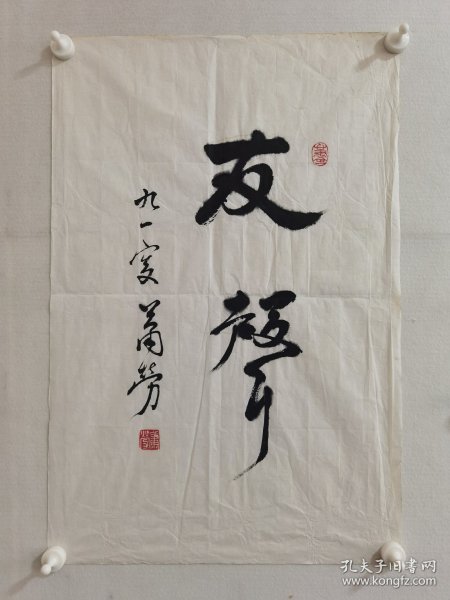 友聲
九一叟 萧劳
孔夫子旧书网
www.kongfz.com